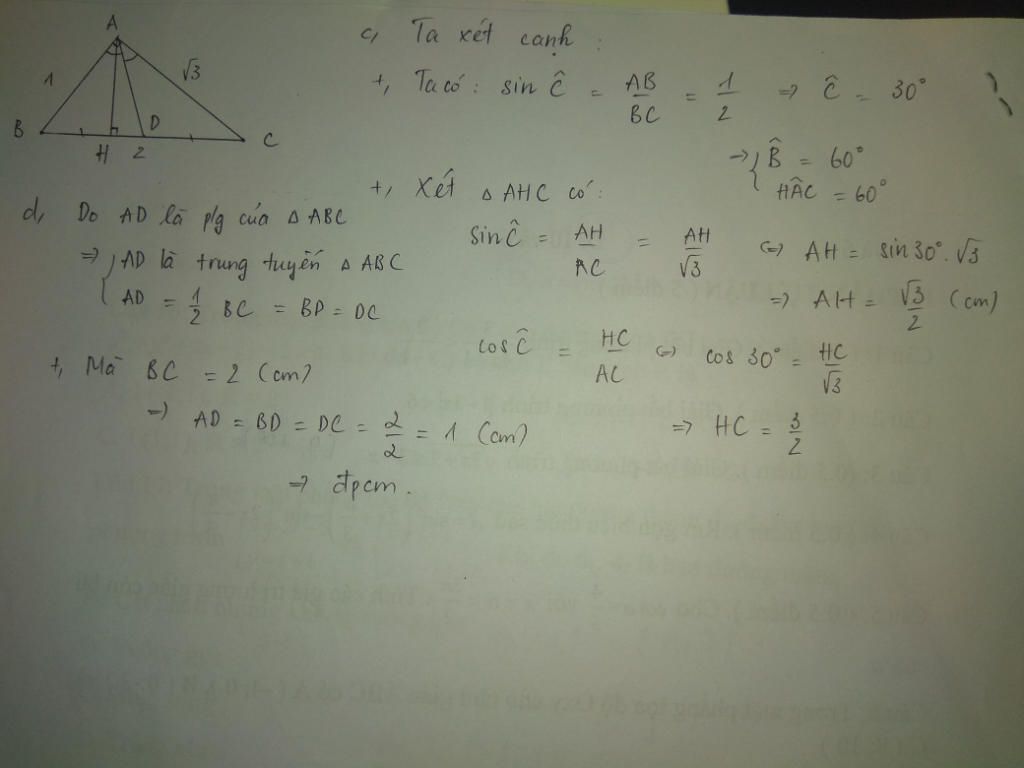 A
1
√3
B
H
2
D
C
c, Ta xét cạnh :
+, Ta có : sin Ĉ = AB/BC = 1/2 => Ĉ = 30°
=> { B̂ = 60°
HÂC = 60°
+, Xét △ AHC có :
sin Ĉ = AH/AC = AH/√3 <=> AH = sin 30° . √3
=> AH = √3/2 (cm)
cos Ĉ = HC/AC <=> cos 30° = HC/√3
=> HC = 3/2
d, Do AD là p/g của △ ABC
=> { AD là trung tuyến △ ABC
AD = 1/2 BC = BD = DC
+, Mà BC = 2 (cm)
=> AD = BD = DC = 2/2 = 1 (cm)
=> đpcm.